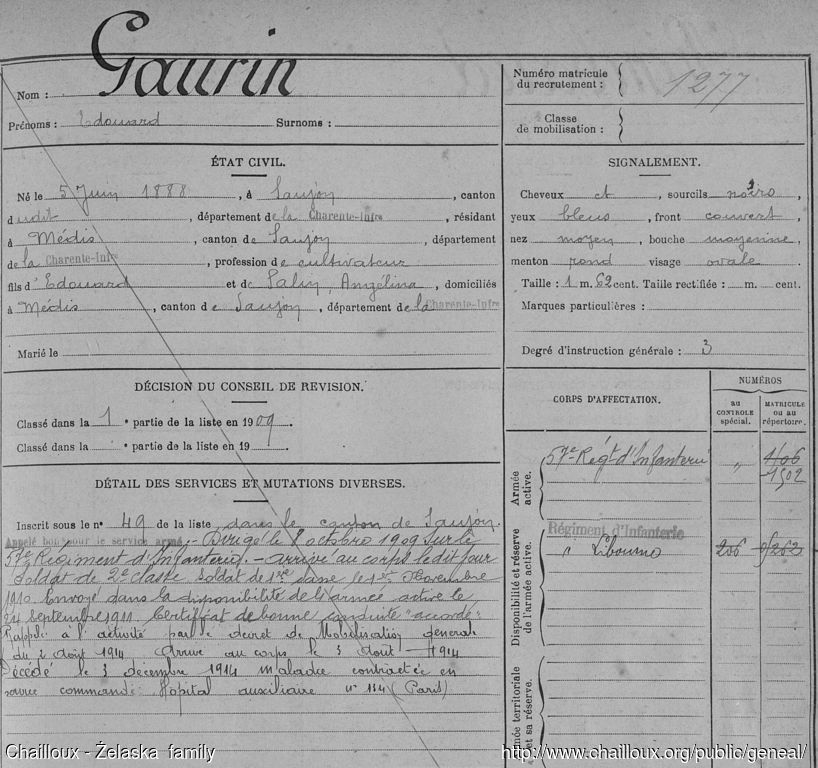 Gaurin
Nom :
Prénoms : Edouard Surnoms :
Numéro matricule du recrutement : 1277
Classe de mobilisation :
ÉTAT CIVIL.
Né le 5 Juin 1888, à Saujon, canton
dudit, département de la Charente-Infre, résidant
à Médis, canton de Saujon, département
de la Charente-Infre, profession de cultivateur
fils d'Edouard et de Angélina, domiciliés
à Médis, canton de Saujon, département de la Charente-Infre
Marié le
SIGNALEMENT.
Cheveux ct, sourcils noirs,
yeux bleus, front couvert,
nez moyen, bouche moyenne,
menton rond visage ovale
Taille : 1 m. 62 cent. Taille rectifiée : m. cent.
Marques particulières :
Degré d'instruction générale : 3
DÉCISION DU CONSEIL DE REVISION.
Classé dans la 1e partie de la liste en 1909.
Classé dans la e partie de la liste en 19
DÉTAIL DES SERVICES ET MUTATIONS DIVERSES.
Inscrit sous le n° 49 de la liste dans le canton de Saujon.
Appelé bon pour le service armé, - Dirigé le 8 octobre 1909 sur le
57e Régiment d'Infanterie. - arrivé au corps ledit jour
Soldat de 2e classe Soldat de 1re classe le 1er Novembre
1910 Envoyé dans la disponibilité de l'armée active le
24 septembre 1911. Certificat de bonne conduite "accordé"
Rappelé à l'activité par le décret de Mobilisation générale
du 2 août 1914 Arrivé au corps le 3 août 1914
Décédé le 3 décembre 1914 maladie contractée en
service commandé Hôpital auxiliaire n° 134 (Paris)
CORPS D'AFFECTATION.
NUMÉROS
au CONTROLE spécial.
MATRICULE ou au répertoire.
Armée active.
57e Régt d'Infanterie " 1166
1502
Disponibilité et réserve de l'armée active.
Régiment d'Infanterie
" Libourne 206
Armée territoriale et sa réserve.
Chailloux - Želaska family
http://www.chailloux.org/public/geneal/